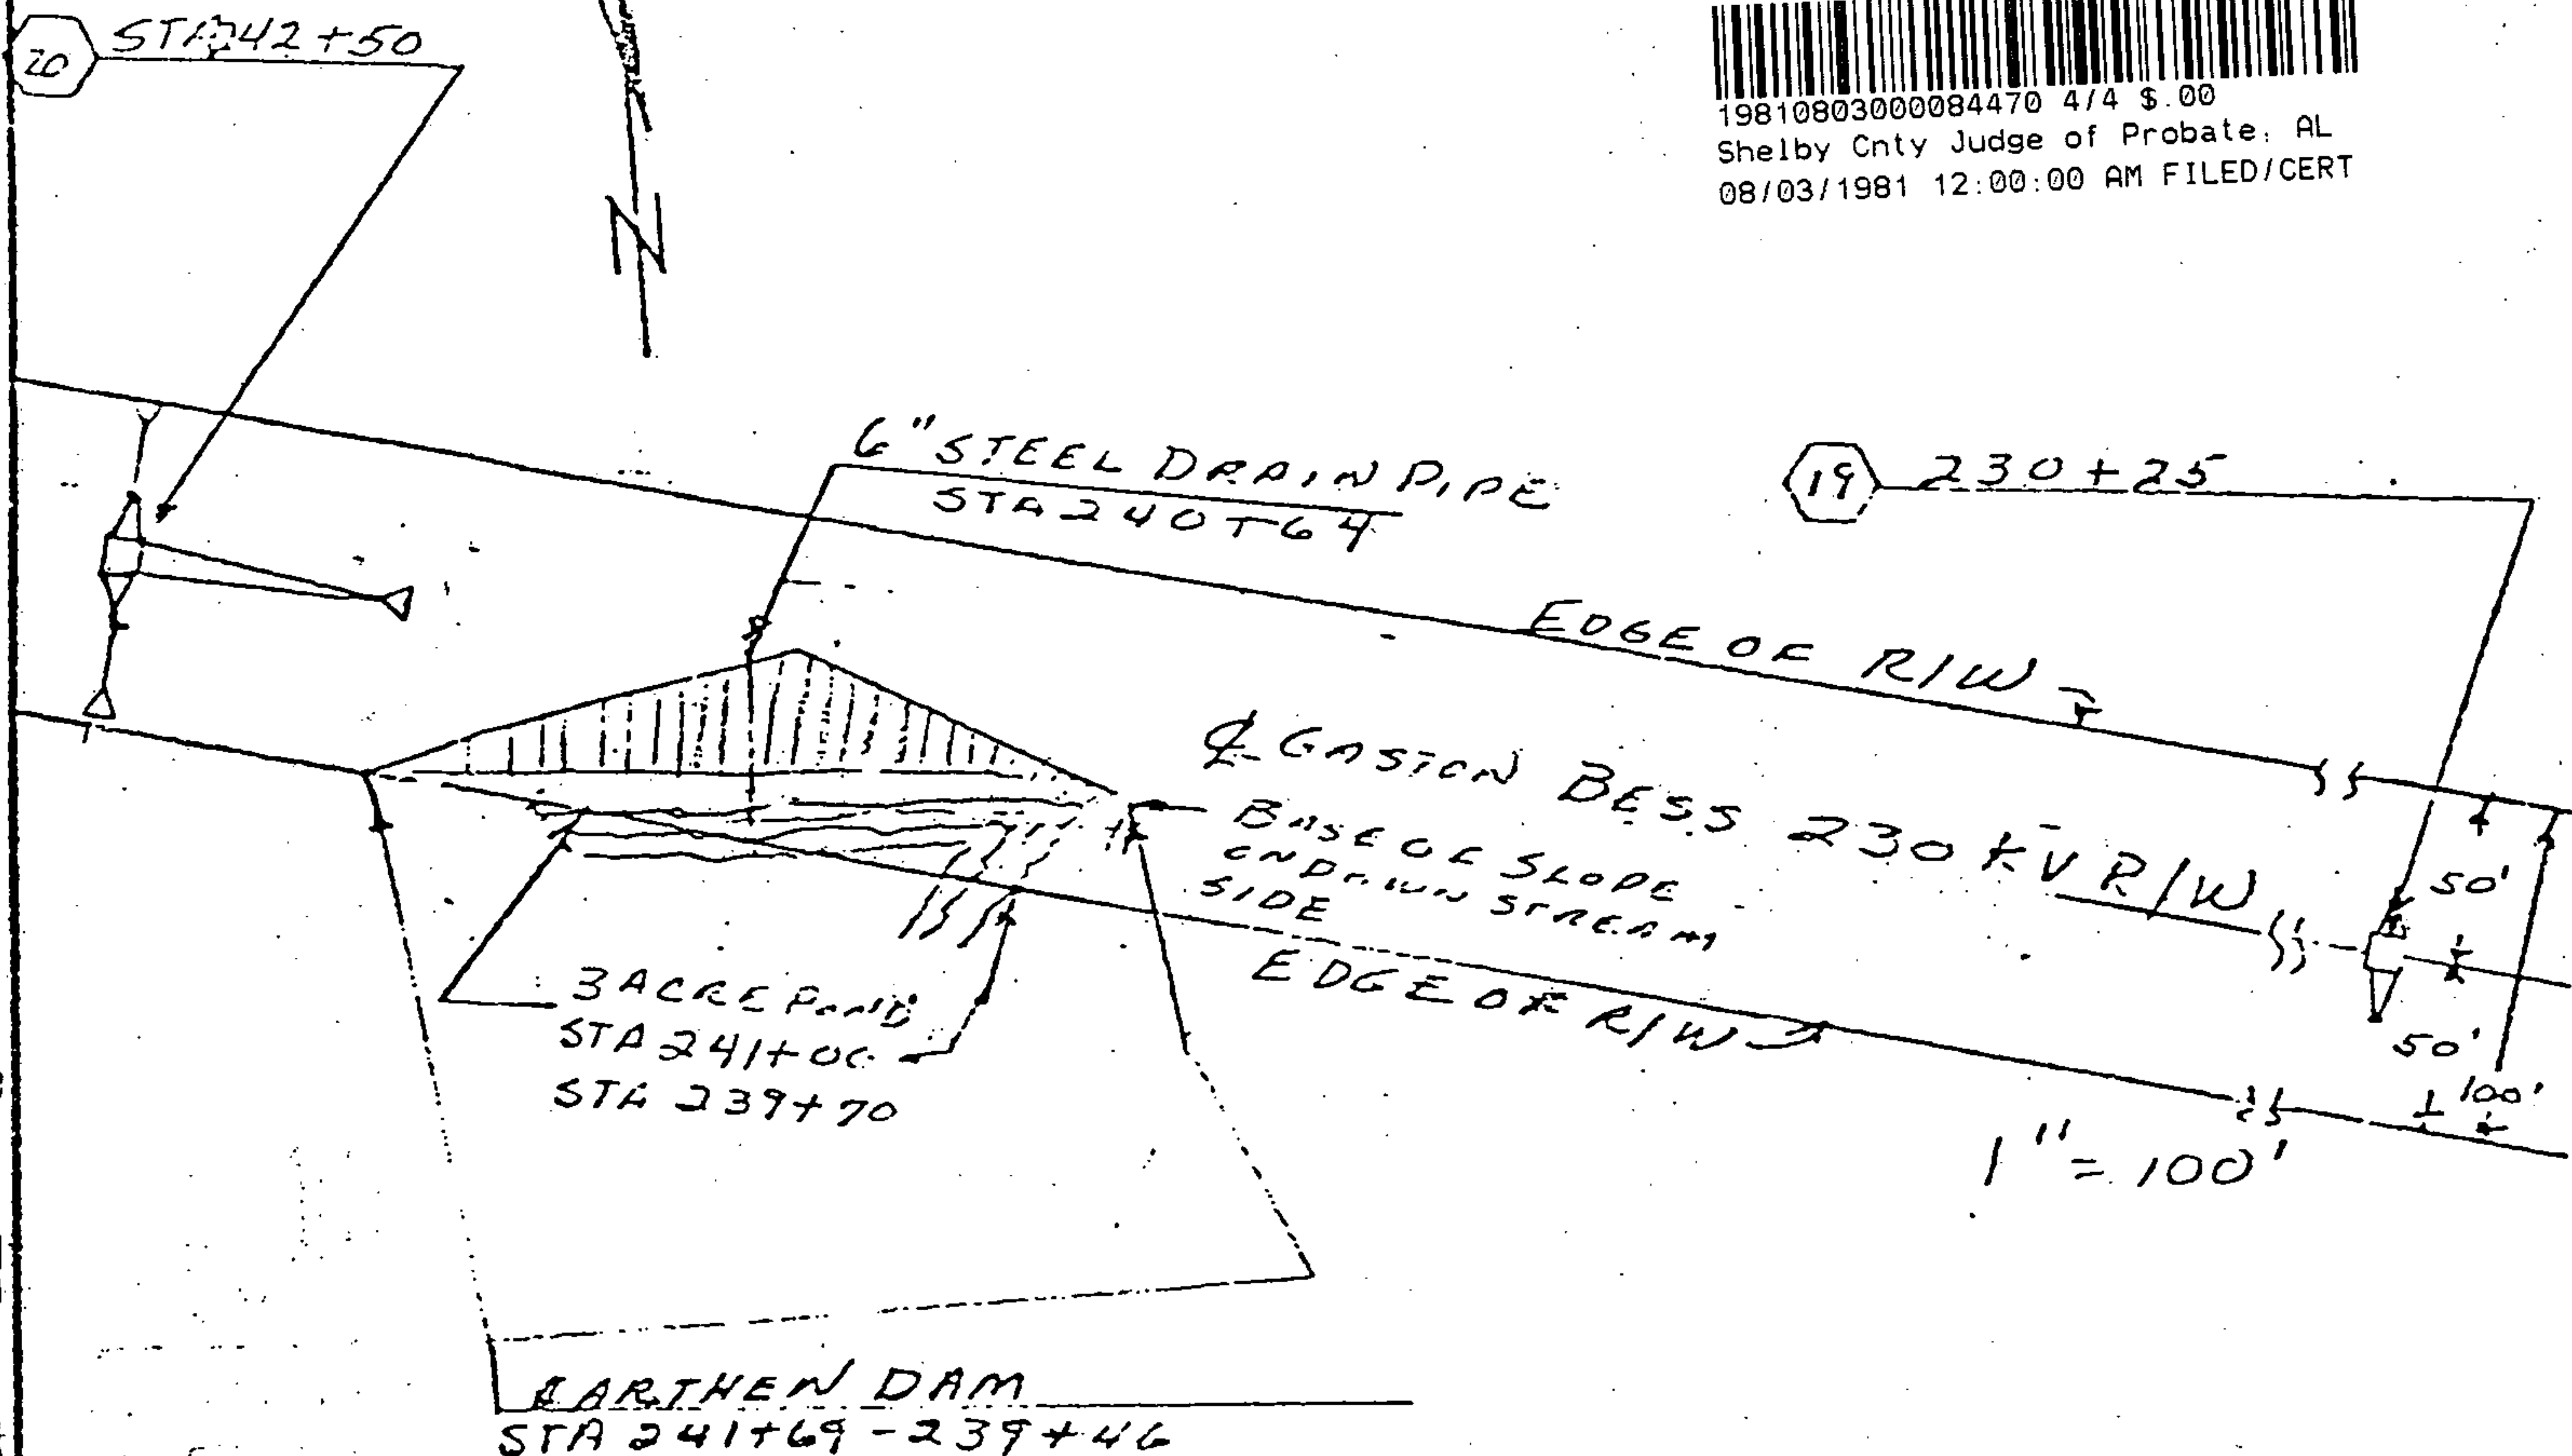 20 STA 242+50
19810803000084470 4/4 $.00
Shelby Cnty Judge of Probate, AL
08/03/1981 12:00:00 AM FILED/CERT
N
6" STEEL DRAIN PIPE
STA 240+64
19 230+25
EDGE OF R/W
℄ GASTON BESS 230 KV R/W
BASE OF SLOPE
ON DOWN STREAM
SIDE
EDGE OF R/W
50'
50'
100'
3 ACRE POND
STA 241+00
STA 239+70
1" = 100'
EARTHEN DAM
STA 241+69 - 239+46